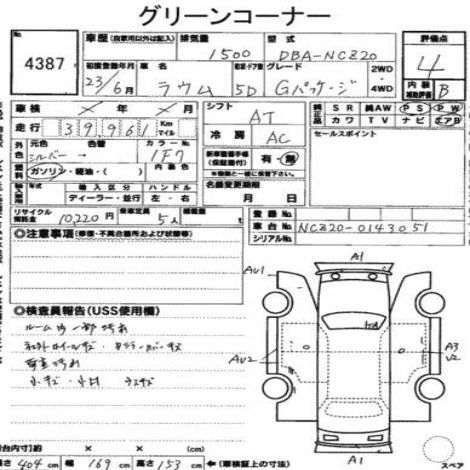 グリーンコーナー
No.
4387
車歴(自家用以外は記入) 排気量 1500 型式 DBA-NCZ20
評価点
4
初度登録年月 23/6月 車名 ラウム 形状・ドア数 5D グレード Gパッケージ 2WD 4WD
内装 補助評価 B
車検 × 年 × 月
走行 39961 Km マイル
シフト AT
冷房 AC
純正品 SR 純AW PS PW
カワ TV ナビ エアB
セールスポイント
外色 元色 シルバー 色替 カラーNo. 1F7
燃料 ガソリン・軽油・( ) 内装色
新車整備手帳(保証書付) 有・無
名義変更期限 月 日
輸入車 年式 輸入区分 ディーラー・並行 ハンドル 左・右
リサイクル預託金 10,220円 乗車定員 5人 積載量 t
登録No.
車台No. NCZ20-0143051
シリアルNo.
◎注意事項(修復・不具合箇所および状態等)
◎検査員報告(USS使用欄)
ルーム内一部汚れ
荷室汚れ
A1
AU1
AU2
A3
U2
A1
スペア
車台内寸(約) × ×
長さ 404 cm 幅 169 cm 高さ 153 cm ←(車検証上の寸法)